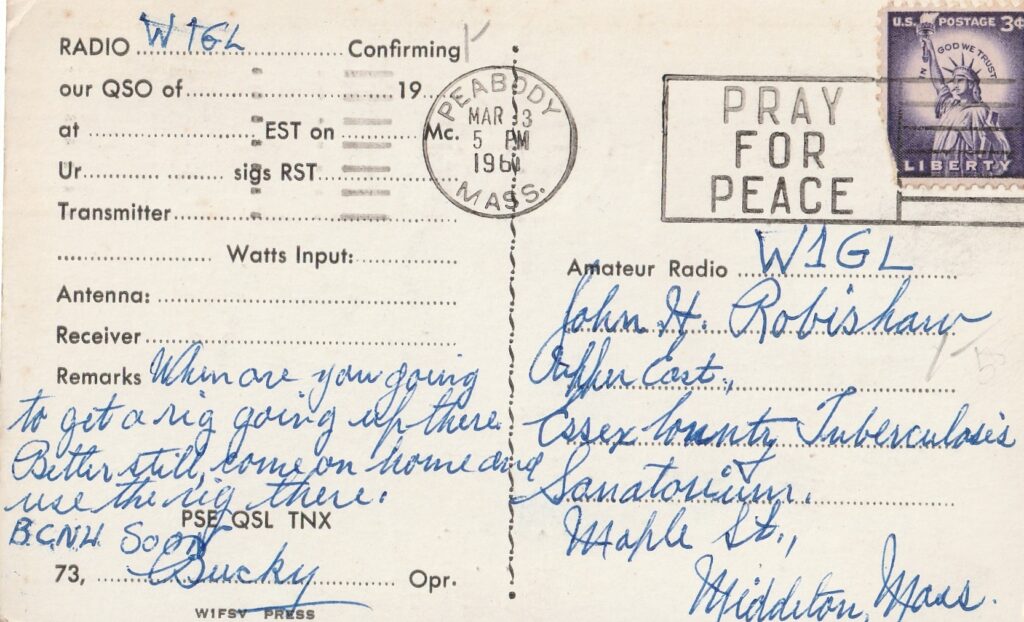 RADIO W1GL Confirming
our QSO of 19
at EST on Mc.
Ur sigs RST
Transmitter
Watts Input:
Antenna:
Receiver
Remarks When are you going
to get a rig going up there.
Better still, come on home and
use the rig there.
PSE QSL TNX
B.C.N.U. Soon
73, Bucky Opr.
W1FSV PRESS
PEABODY
MAR 3
5 PM
196
MASS.
PRAY
FOR
PEACE
U.S. POSTAGE 3¢
IN GOD WE TRUST
LIBERTY
Amateur Radio W1GL
John H. Robishaw
Upper East,
Essex County Tuberculosis
Sanatorium.
Maple St.,
Middleton, Mass.